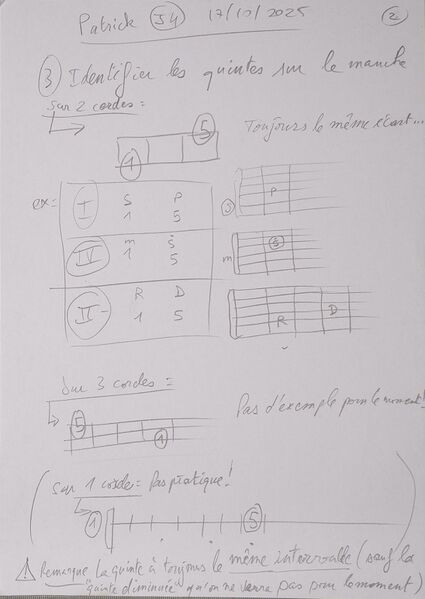 Patrick J4 17/10/2025 2
3 Identifier les quintes sur le manche
Sur 2 cordes =
5
1
Toujours le même écart...
ex =
I S P
1 5
P
3
IV m S
1 5
S
m
II - R D
1 5
R D
Sur 3 cordes =
5
1
Pas d'exemple pour le moment!
Sur 1 corde = Pas pratique!
1 5
Remarque La quinte à toujours le même intervalle (sauf la
"quinte diminuée" qu'on ne verra pas pour le moment)